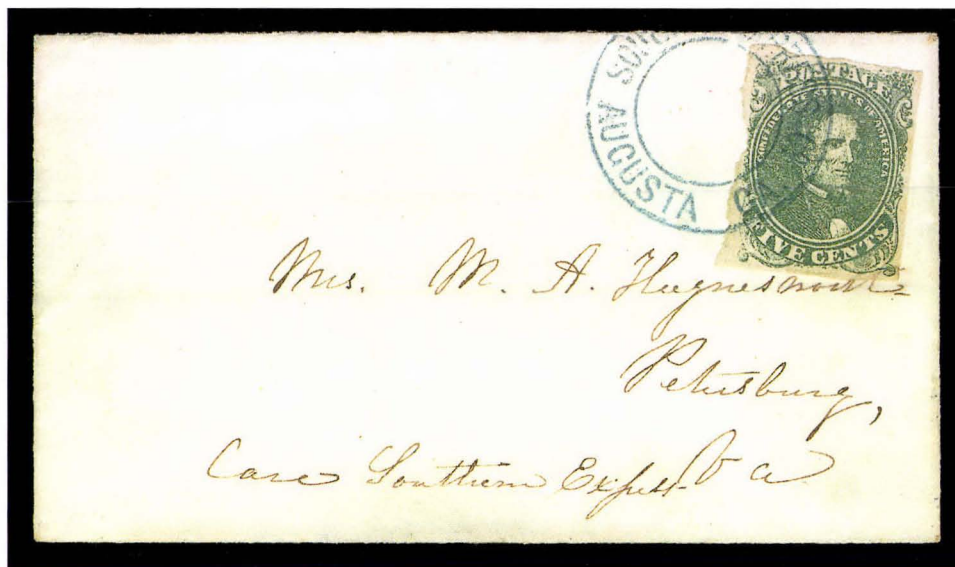 AUGUSTA GA
POSTAGE
CONFEDERATE STATES OF AMERICA
FIVE CENTS
Mrs. M. A.
Petersburg,
Care Southern Express Va